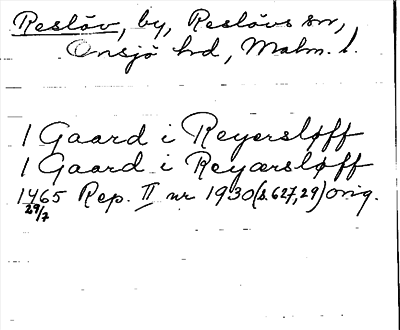 Reslöv, by, Reslövs sn,
Onsjö hd, Malm. l.
1 Gaard i Reyersløff
1 Gaard i Reyærsløff
1465 Rep. II nr 1930 (s. 627, 29) orig.
29/7